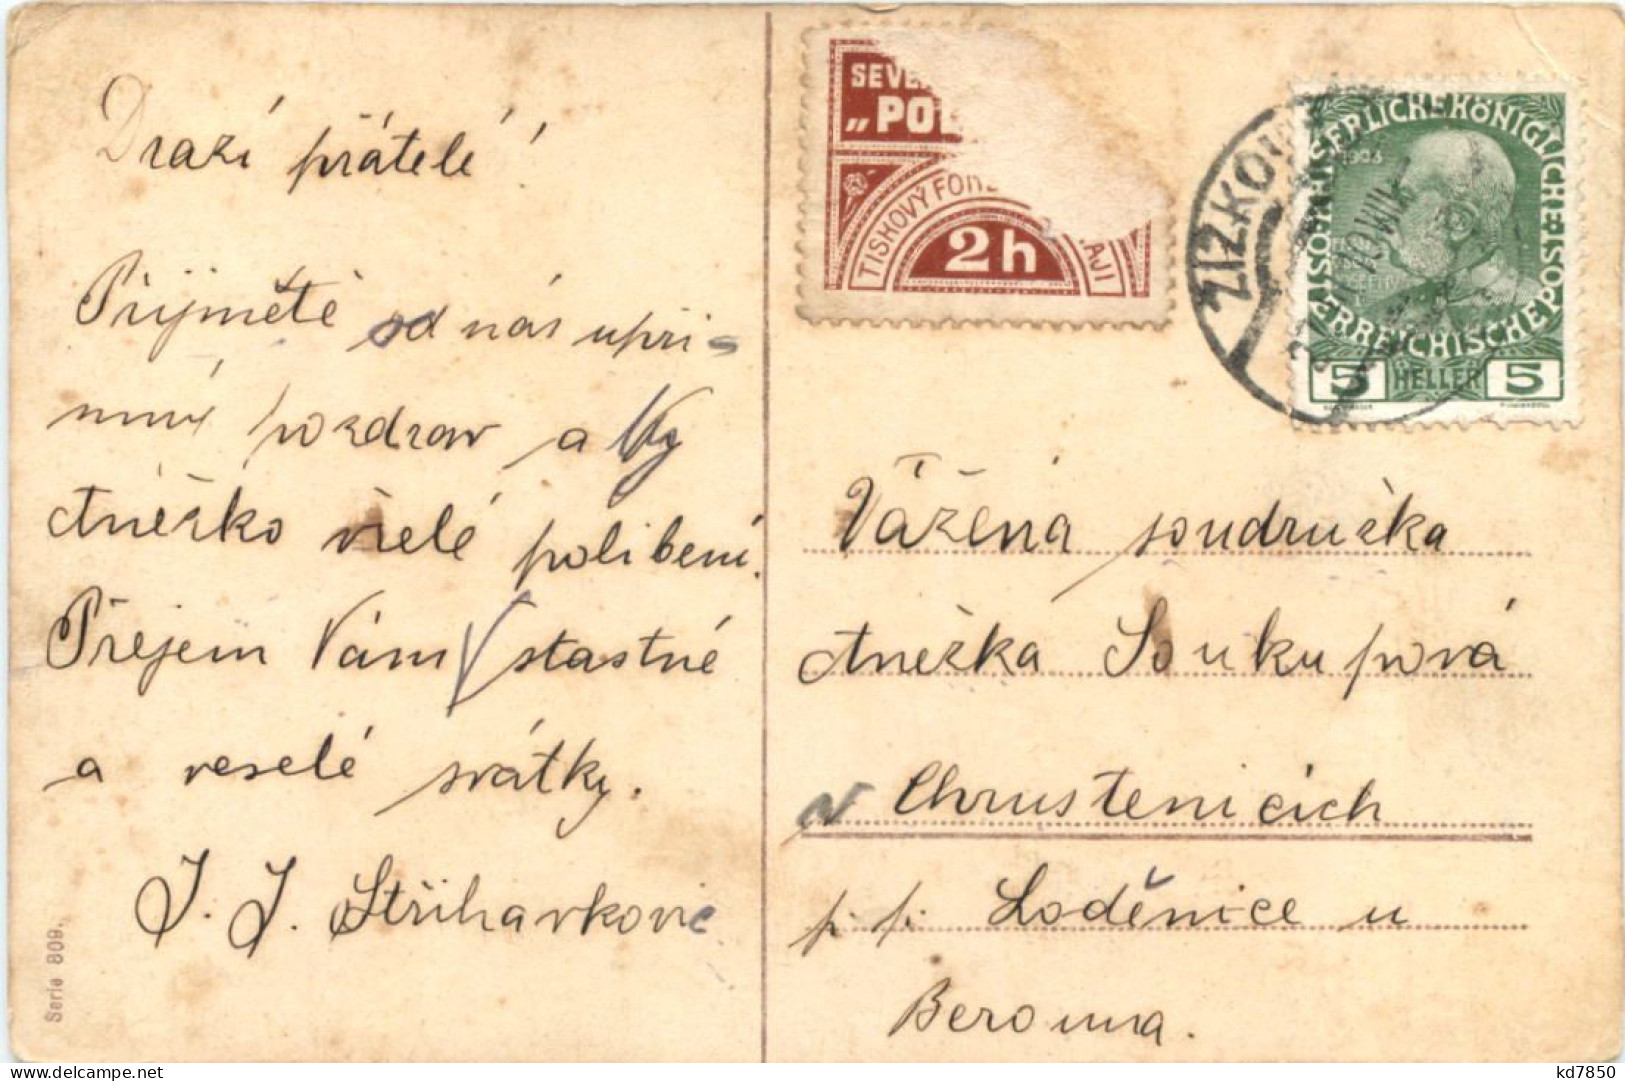 Drazí přátelé!
Přijměte od nás upří-
mný pozdrav a Vy
Anežko vřelé políbení.
Přejem Vám šťastné
a veselé svátky.
J. J. Střihavkovi
Serie 809.
SEVE
„POL
TISKOVÝ FON
AJI
2 h
ŽIŽKOV
KAISERLICHE KÖNIGLICHE
ÖSTERREICHISCHE POST
1908
5 HELLER 5
Vážená soudružka
Anežka Soukupová
v Chrustenicích
p. p. Loděnice u
Berouna.
kd7850